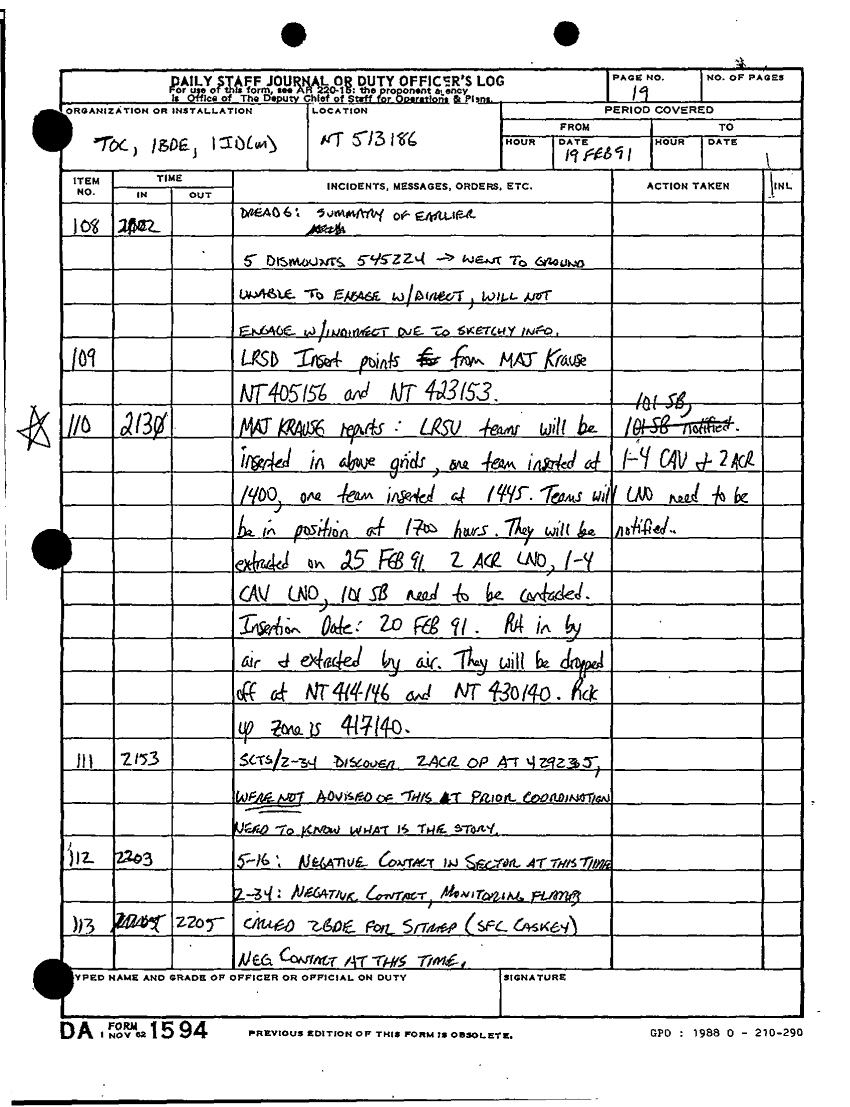 DAILY STAFF JOURNAL OR DUTY OFFICER'S LOG
For use of this form, see AR 220-15; the proponent agency
is Office of The Deputy Chief of Staff for Operations & Plans.
PAGE NO.
19
NO. OF PAGES
ORGANIZATION OR INSTALLATION
TOC, 1BDE, 1ID(M)
LOCATION
NT 513186
PERIOD COVERED
FROM
TO
HOUR
DATE
19 FEB 91
HOUR
DATE
ITEM NO.
TIME
IN
OUT
INCIDENTS, MESSAGES, ORDERS, ETC.
ACTION TAKEN
INL
108 DREAD 6: SUMMARY OF EARLIER
5 DISMOUNTS 545224 → WENT TO GROUND
UNABLE TO ENGAGE W/DIRECT, WILL NOT
ENGAGE W/INDIRECT DUE TO SKETCHY INFO.
109 LRSD Insert points from MAJ Krause
NT 405156 and NT 423153.
110 2130 MAJ KRAUSE reports: LRSU teams will be
inserted in above grids, one team inserted at
1400, one team inserted at 1445. Teams will
be in position at 1700 hours. They will be
extracted on 25 FEB 91. 2 ACR LNO, 1-4
CAV LNO, 101 SB need to be contacted.
Insertion Date: 20 FEB 91. Put in by
air & extracted by air. They will be dropped
off at NT 414146 and NT 430140. Pick
up zone is 417140.
101 SB,
101 SB notified.
1-4 CAV & 2 ACR
LNO need to be
notified.
111 2153 SCTS/2-34 DISCOVER 2ACR OP AT 429235,
WERE NOT ADVISED OF THIS AT PRIOR COORDINATION
NEED TO KNOW WHAT IS THE STORY.
112 2203 5-16: NEGATIVE CONTACT IN SECTOR AT THIS TIME
2-34: NEGATIVE CONTACT, MONITORING FLANK
113 2205 CALLED 2BDE FOR SITREP (SFC CASKEY)
NEG CONTACT AT THIS TIME.
TYPED NAME AND GRADE OF OFFICER OR OFFICIAL ON DUTY
SIGNATURE
DA FORM 1 NOV 62 1594
PREVIOUS EDITION OF THIS FORM IS OBSOLETE.
GPO : 1988 O - 210-290